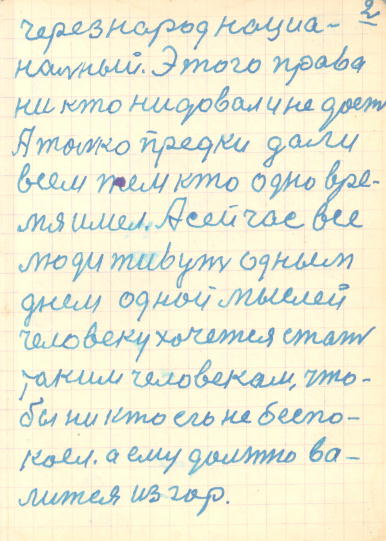 2
через народ национа-
налный. Этого права
ни кто ни довал и не доет
А толко предки дали
всем тем кто одно вре-
мя имел. А сейчас все
люди живут одным
днем одной мыслей
человеку хочется стат
таким человекам, что-
бы ни кто его не беспо-
коел. а ему должно ва-
лится из гор.